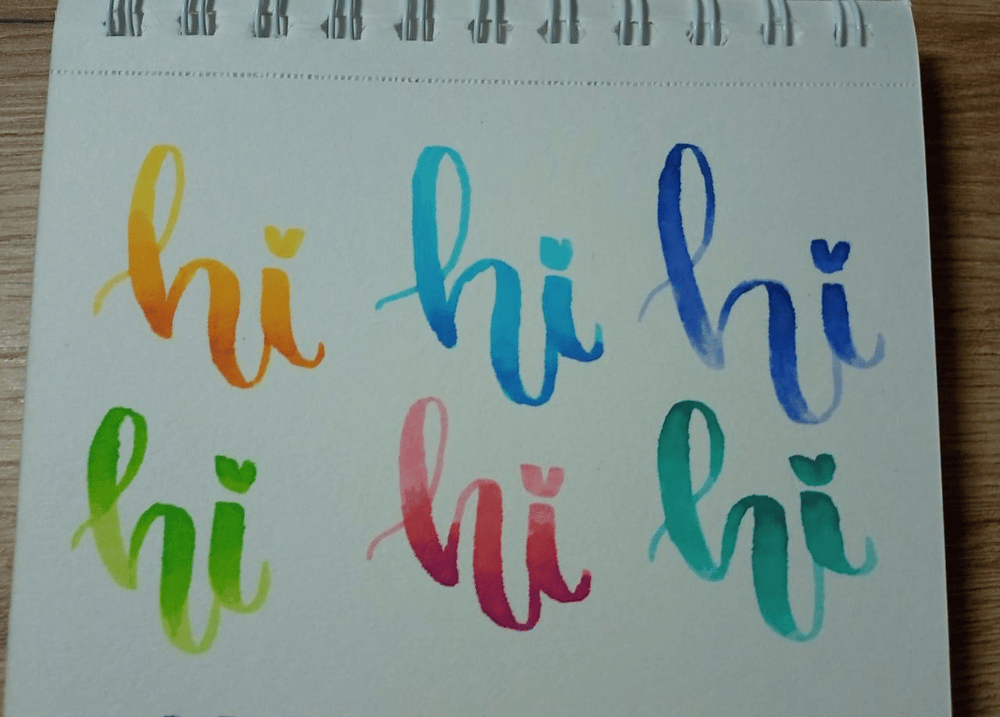 hi hi hi
hi hi hi